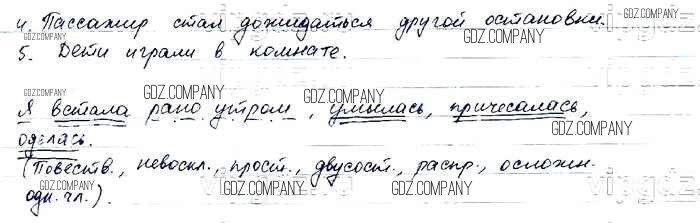 4. Пассажир стал дожидаться другой остановки.
5. Дети играли в комнате.
Я встала рано утром, умылась, причесалась,
оделась.
(Повеств., невоскл., прост., двусост., распр., осложн.
одн. чл.).
GDZ.COMPANY
GDZ.COMPANY
GDZ.COMPANY
GDZ.COMPANY
GDZ.COMPANY
GDZ.COMPANY
GDZ.COMPANY
GDZ.COMPANY
GDZ.COMPANY
vipgdz
vipgdz